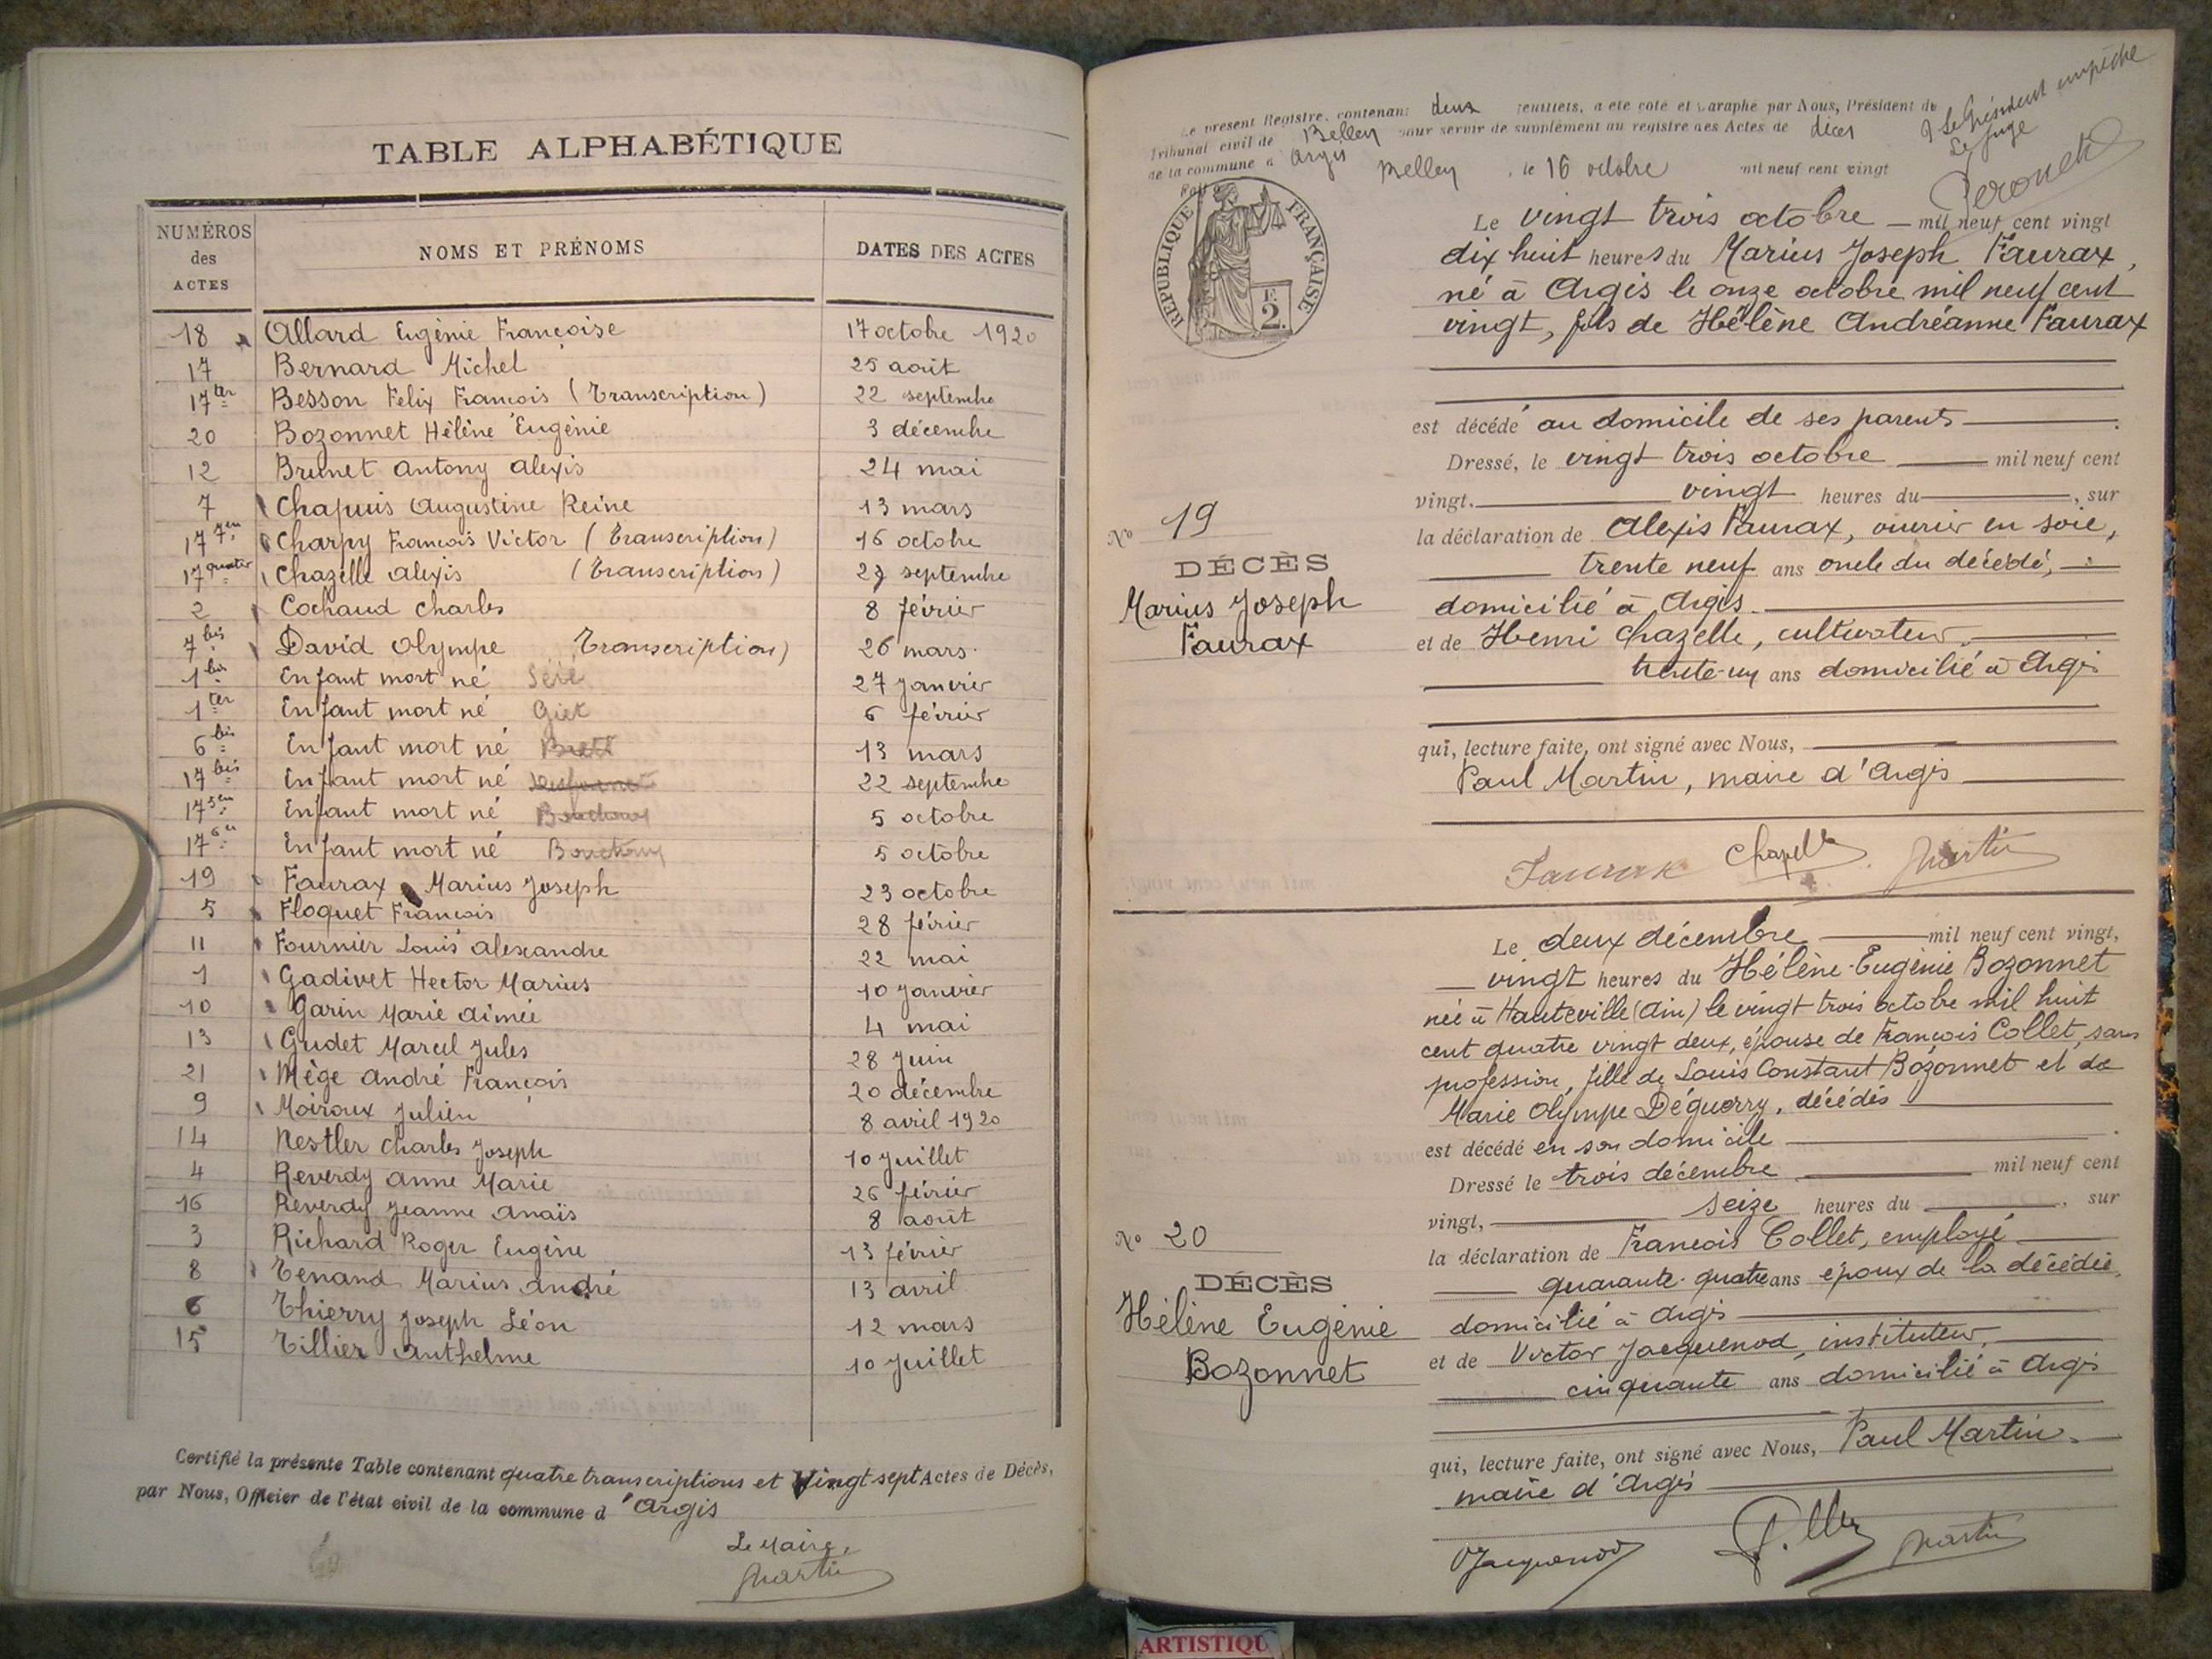 TABLE ALPHABÉTIQUE
NUMÉROS des ACTES NOMS ET PRÉNOMS DATES DES ACTES
18 Allard Eugénie Françoise 17 octobre 1920
17 Bernard Michel 25 août
17 ter Besson Felix François (Transcription) 22 septembre
20 Bozonnet Hélène Eugénie 3 décembre
12 Brunet Antony Alexis 24 mai
7 Chapuis Augustine Reine 13 mars
17 7em Charpy François Victor (Transcription) 16 octobre
17 quater Chazelle Alexis (Transcription) septembre
2 Cochaud Charles 8 février
7 bis David Olympe Transcription) 26 mars
1 bis Enfant mort né 27 janvier
1 ter Enfant mort né Giet 6 février
6 bis Enfant mort né 13 mars
17 bis Enfant mort né 22 septembre
17 5em Enfant mort né 5 octobre
17 6e Enfant mort né 5 octobre
19 Faurax Marius Joseph 23 octobre
5 Floquet François 28 février
11 Fournier Louis Alexandre 22 mai
1 Gadivet Hector Marius 10 janvier
10 Garin Marie Aimée 4 mai
13 Gudet Marcel Jules 28 juin
21 Mège André François 20 décembre
9 Moiroux Julien 8 avril 1920
14 Nestler Charles Joseph 10 juillet
4 Reverdy Anne Marie 26 février
16 Reverdy Jeanne Anaïs 8 août
3 Richard Roger Eugène 13 février
8 Tenand Marius André 13 avril
6 Thierry Joseph Léon 12 mars
15 Tillier Anthelme 10 juillet
Certifié la présente Table contenant quatre transcriptions et Vingt sept Actes de Décès,
par Nous, Officier de l'état civil de la commune d'Argis
Le Maire,
Martin
Le présent Registre, contenant deux feuillets, a été coté et paraphé par Nous, Président du
Tribunal civil de Belley pour servir de supplément au registre des Actes de décès
de la commune d Argis
Fait à Belley, le 16 octobre mil neuf cent vingt
Le Président empêché
Le Juge
RÉPUBLIQUE FRANÇAISE
F.
2.
Le vingt trois octobre — mil neuf cent vingt
dix huit heures du Marius Joseph Faurax,
né à Argis le onze octobre mil neuf cent
vingt, fils de Hélène Andréanne Faurax
est décédé au domicile de ses parents
Dressé, le vingt trois octobre mil neuf cent
vingt. vingt heures du , sur
No 19
la déclaration de Alexis Faurax, ouvrier en soie,
DÉCÈS
trente neuf ans oncle du décédé,
Marius Joseph
domicilié à Argis
Faurax
et de Henri Chazelle, cultivateur,
trente-un ans domicilié à Argis
qui, lecture faite, ont signé avec Nous,
Paul Martin, maire d'Argis
Faurax Chazelle Martin
Le deux décembre mil neuf cent vingt,
vingt heures du Hélène-Eugénie Bozonnet
née à Hauteville (Ain) le vingt trois octobre mil huit
cent quatre vingt deux, épouse de François Collet, sans
profession, fille de Louis Constant Bozonnet et de
Marie Olympe Déguerry, décédés
est décédé en son domicile
Dressé le trois décembre mil neuf cent
vingt, seize heures du , sur
No 20
la déclaration de François Collet, employé
DÉCÈS
quarante-quatre ans époux de la décédée,
Hélène Eugénie
domicilié à Argis
Bozonnet
et de Victor Jacquenod, instituteur,
cinquante ans domicilié à Argis
qui, lecture faite, ont signé avec Nous, Paul Martin,
maire d'Argis
VJacquenod Martin
ARTISTIQU